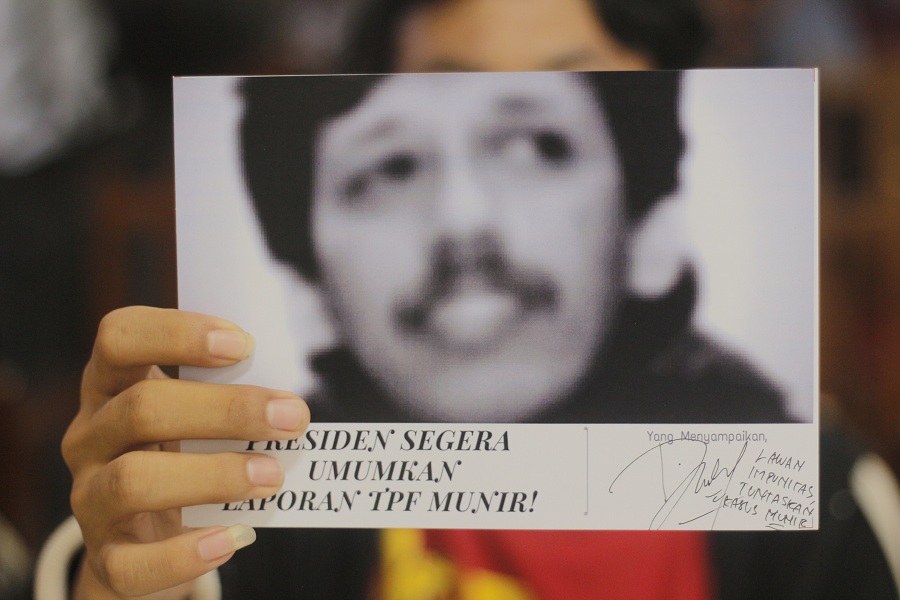 PRESIDEN SEGERA
UMUMKAN
LAPORAN TPF MUNIR!
Yang Menyampaikan,
LAWAN
IMPUNITAS,
TUNTASKAN
KASUS MUNIR